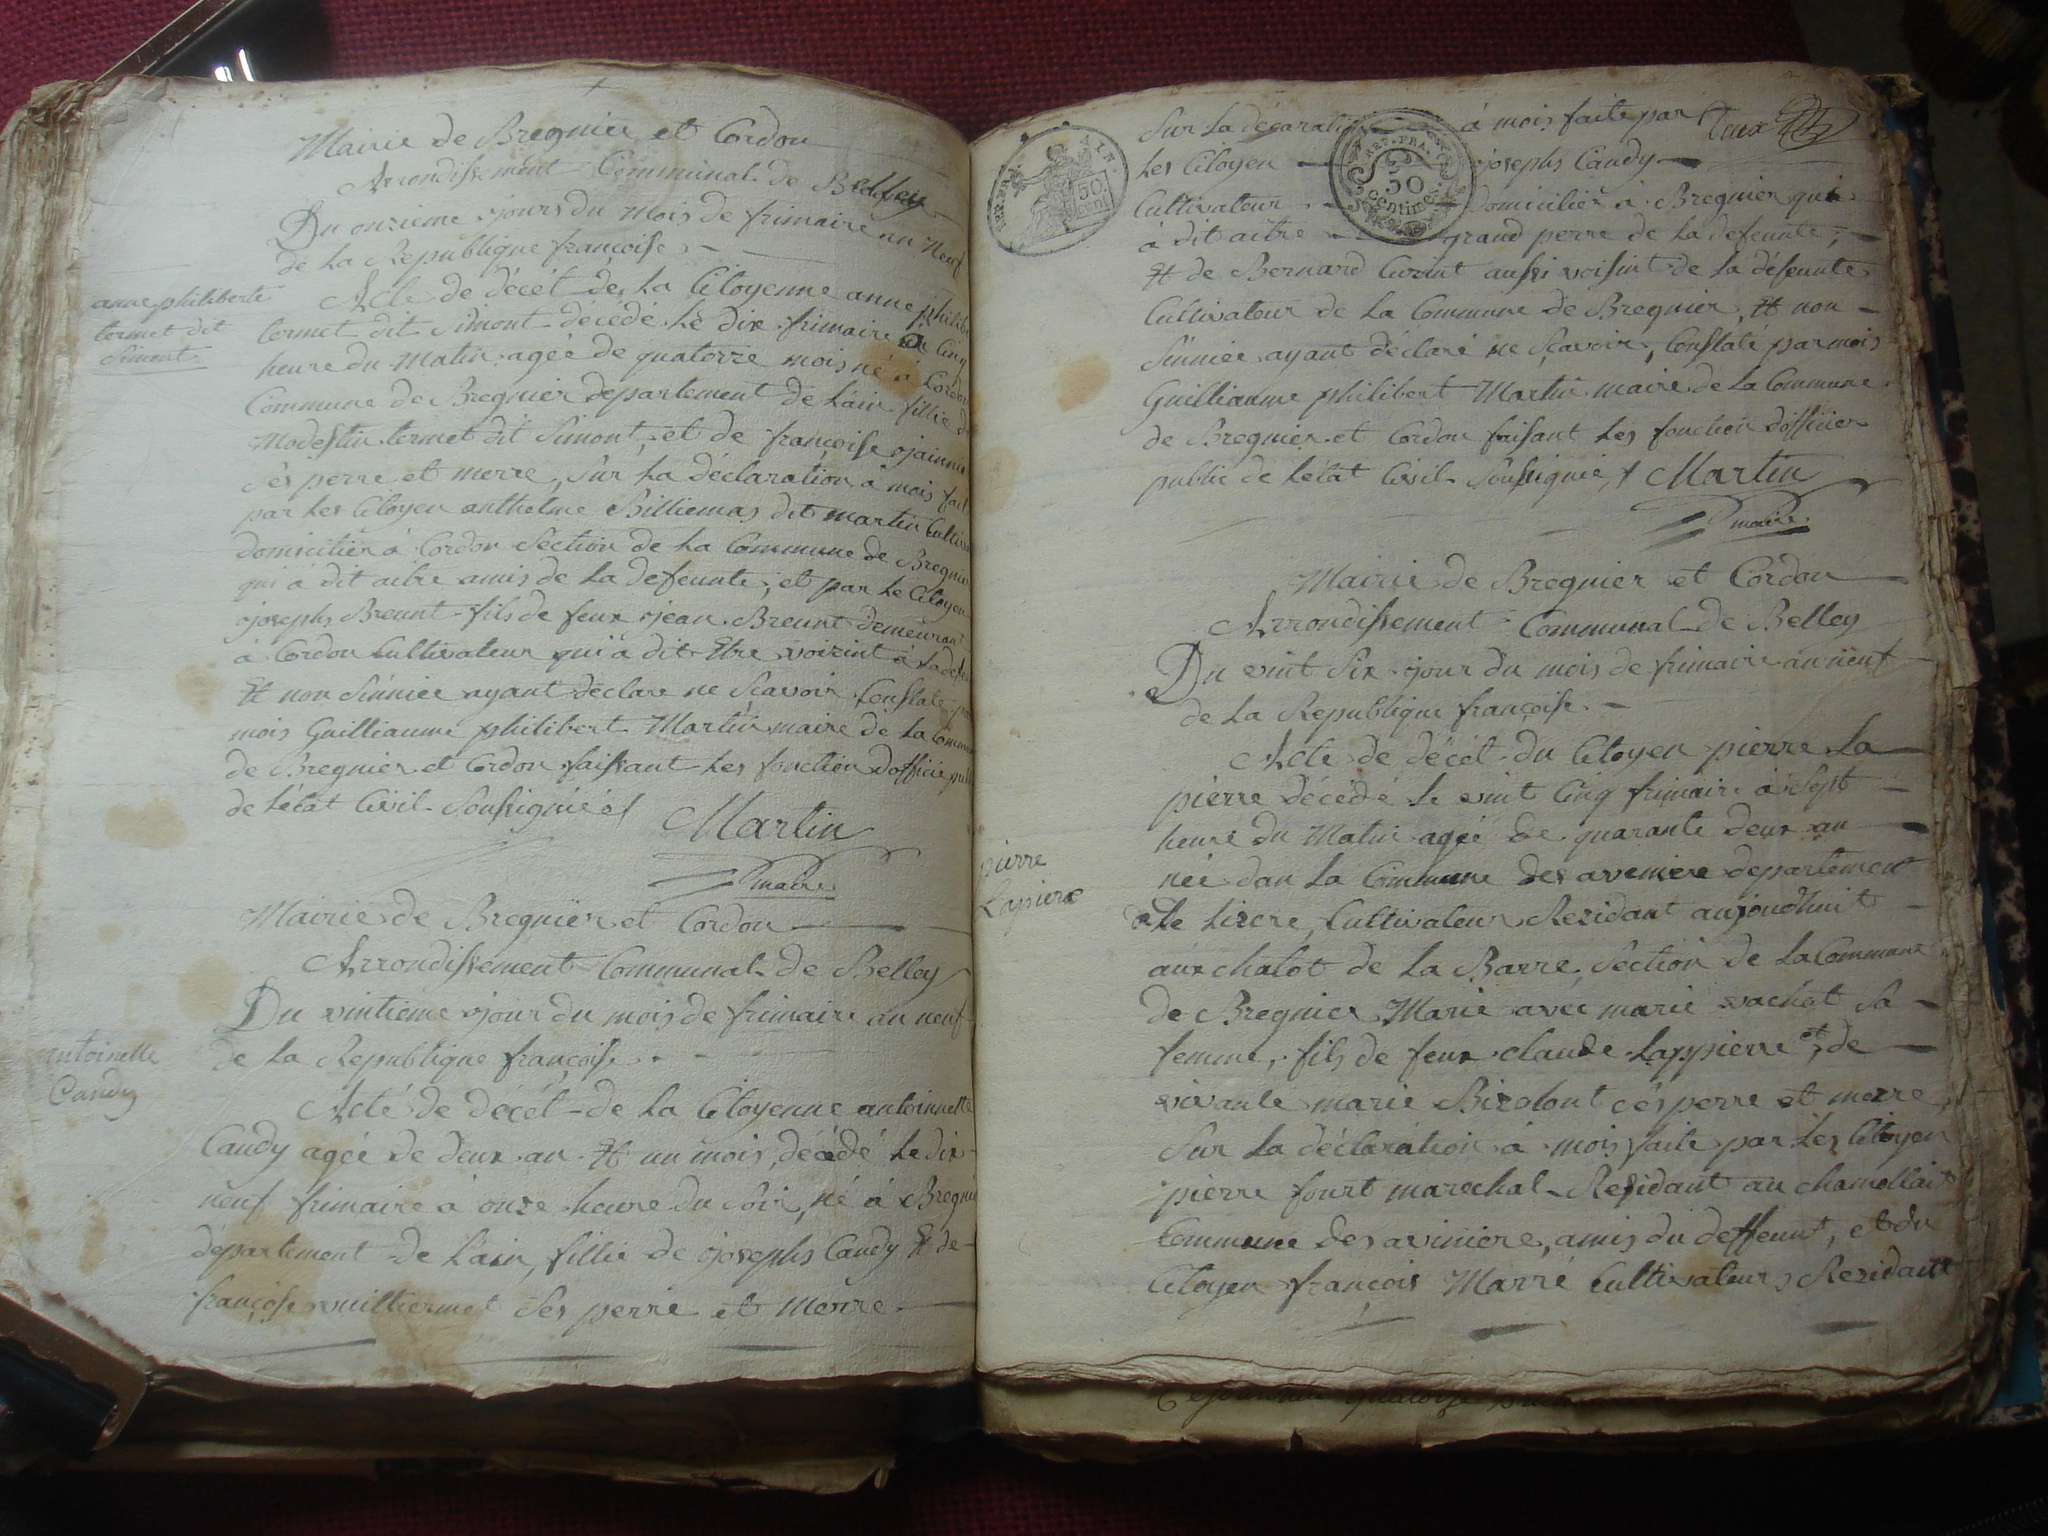 Mairie de Bregnier et Cordon
Arrondissement Communal de Belley
Du onzieme jours du mois de frimaire an Neuf
de La Republique françoise
anne philiberte
termet dit
Simont
Acte de décét de La Citoyenne anne philibe
termet dit Simont décédé le dix frimaire à Cinq
heure du Matin agée de quatorze mois né à Cordon
Commune de Bregnier departement de Lain fillie de
Modestin termet dit Simont, et de françoise
sés perre et merre, sur La déclaration à mois fait
par Les Citoyen anthelme Billiemas dit martin Cultiv
domicilier à Cordon Section de La Commune de Bregnier
qui à dit aitre amis de La defeunte, et par Le Citoyen
joseph Breunt fils de feux jean Breunt demeurant
à Cordon Cultivateur qui à dit Etre voizint à La defeu
Et non Sinniée ayant déclare ne Scavoir Constaté par
mois Guilliaume philibert Martin maire de La Commun
de Bregnier et Cordon faissant Les fonction dofficie publ
de Létat Civil Soussignié
Martin
maire
Mairie de Bregnier et Cordon
Arrondissement Communal de Belley
Du vintieme jour du mois de frimaire an neuf
de La Republique françoise
antoinette
Candy
Acté de décét de La Citoyenne antoinnette
Candy agée de deux an Et un mois, décédé Le dix
neuf frimaire à onze heure du Soir, né à Bregnier
département de Lain, fillie de joseph Candy Et de
françoise vuilliermet Ses perre et Merre
Sur La déclaration à mois faite par
Les Citoyen joseph Candy
Cultivateur domicilier à Bregnier qui
à dit aitre grand perre de La defeunte,
Et de Bernard Curint aussi voisint de La défeunte
Cultivateur de La Commune de Bregnier, Et non
Sinniée ayant déclaré ne Scavoir, Constaté par mois
Guilliaume philibert Martin maire de La Commune
de Bregnier et Cordon faisant Les fonction dofficier
public de Létat Civil Soussignié
Martin
maire
REP. FRA.
50
Centimes
50
cent
Mairie de Bregnier et Cordon
Arrondissement Communal de Belley
Du vint Six jour du mois de frimaire an neuf
de La Republique françoise
Acte de décét du Citoyen pierre La
pierre décédé Le vint Cinq frimaire à Sept
heure du Matin agée de quarante deux an
pierre
Lapiere
née dan La Commune des aveniere departement
de Lizere, Cultivateur Rezidant aujoudhuit
aux chalot de La Barre, Section de La Commune
de Bregnier Marié avec marie vachat Sa
femme, fils de feux claude Lappierre et de
vivante marie Birolont cés perre et merre,
Sur La déclaration à mois faite par Les Citoyen
pierre fourt marechal Residant au chamollait
Commune des aviniere, amis du deffeunt, et du
Citoyen françois Marré Cultivateur Rezidant